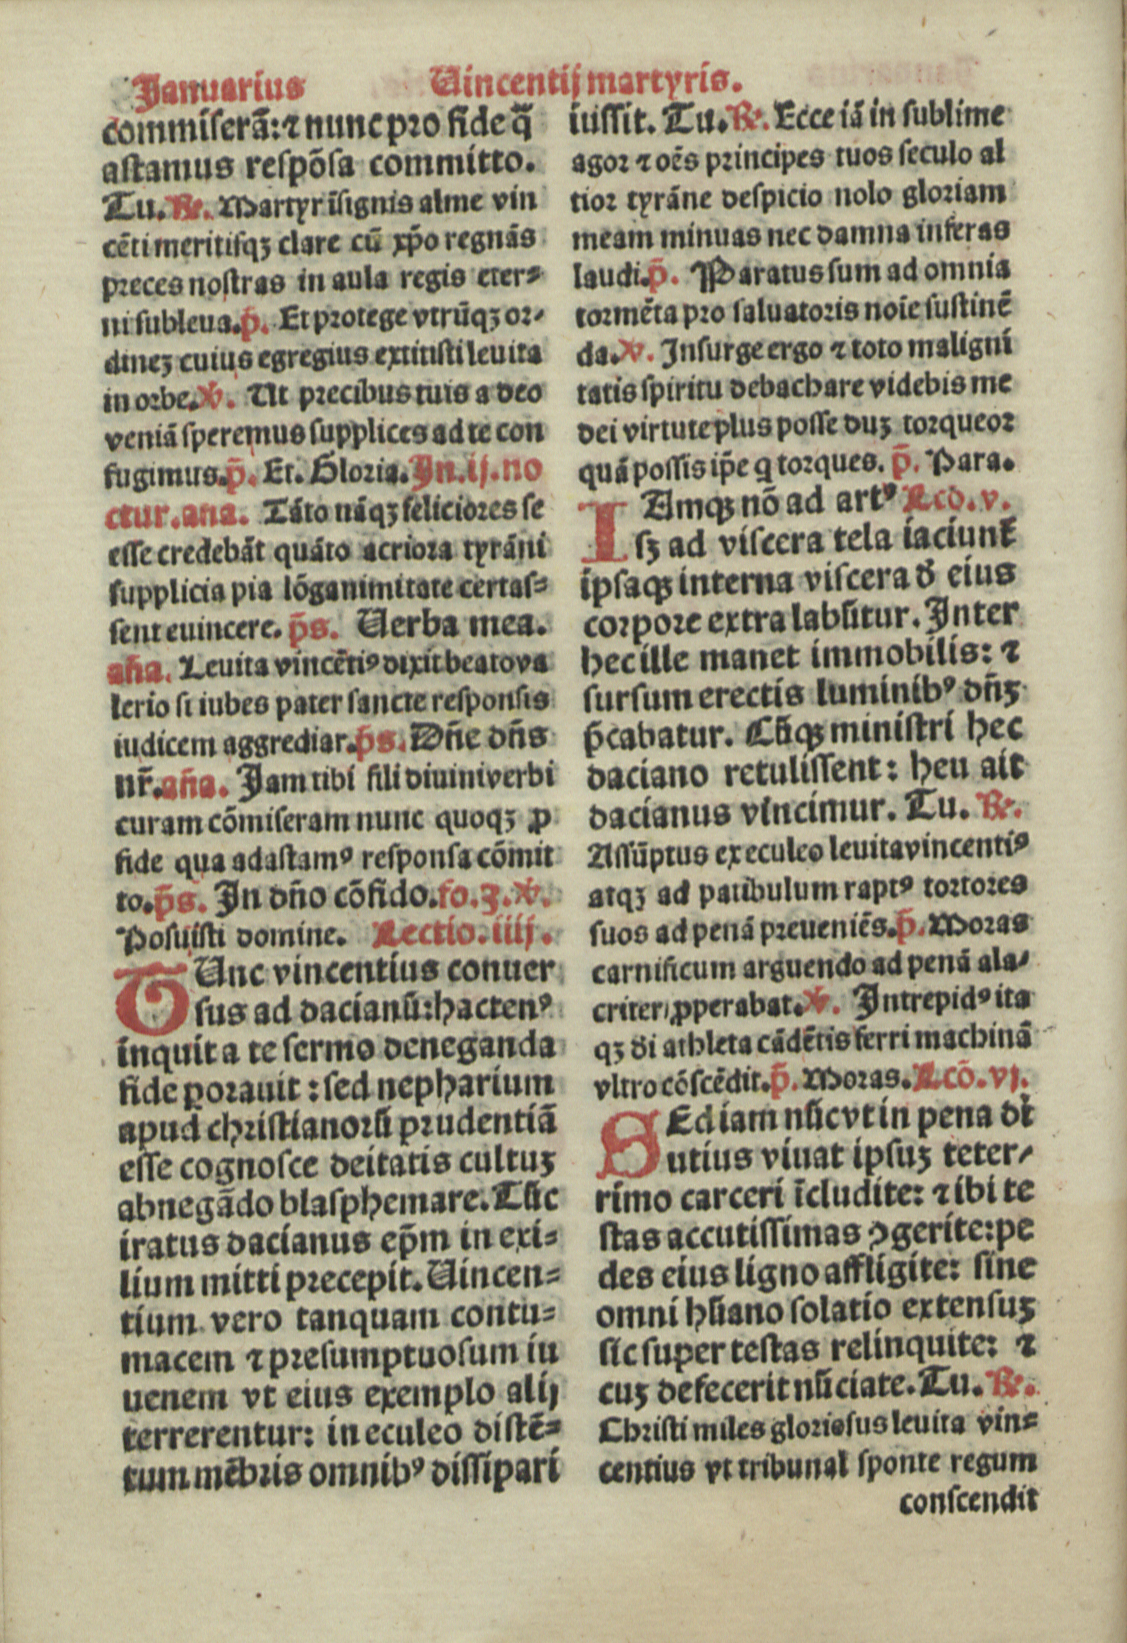 Januarius
Uincentij martyris.
commiserā: ⁊ nunc pro fide q̄
astamus respōsa committo.
Tu. ℟. Martyr īsignis alme vin
cēti meritisqꝫ clare cū xp̄o regnās
preces nostras in aula regis eter⸗
ni subleua. p̄. Et protege vtrūqꝫ or⸗
dinēꝫ cuius egregius extitisti leuita
in orbe. ℣. Ut precibus tuis a deo
veniā speremus supplices ad te con
fugimus. p̄. Et. Gloria. Jn. ij. no
ctur. ana. Tāto nāqꝫ feliciores se
esse credebāt quāto acriora tyrāni
supplicia pia lōganimitate certas⸗
sent euincere. p̄s. Uerba mea.
an̄a. Leuita vincētiꝰ dixit beato va
lerio si iubes pater sancte responsis
iudicem aggrediar. p̄s. Dn̄e dn̄s
nr̄. an̄a. Jam tibi fili diuini verbi
curam cōmiseram nunc quoqꝫ ꝓ
fide qua adastamꝰ responsa cōmit
to. p̄s. Jn dn̄o cōfido. fo. ℣.
Posuisti domine. Lectio. iiij.
TUnc vincentius conuer
sus ad dacianū: hactenꝰ
inquit a te sermo deneganda
fide ꝑorauit: sed nepharium
apud christianorū prudentiā
esse cognosce deitatis cultuꝫ
abnegādo blasphemare. Tūc
iratus dacianus ep̄m in exi⸗
lium mitti precepit. Uincen⸗
tium vero tanquam contu⸗
macem ⁊ presumptuosum iu
uenem vt eius exemplo alij
terrerentur: in eculeo distē⸗
tum mēbris omnibꝰ dissipari
iussit. Tu. ℟. Ecce iā in sublime
agor ⁊ oēs principes tuos seculo al
tior tyrāne despicio nolo gloriam
meam minuas nec damna inferas
laudi. p̄. Paratus sum ad omnia
tormēta pro saluatoris noīe sustinē
da. ℣. Jnsurge ergo ⁊ toto maligni
tatis spiritu debachare videbis me
dei virtute plus posse duꝫ torqueor
quā possis ip̄e q torques. p̄. Para.
IAmqꝫ nō ad artꝰ Lcō. v.
sꝫ ad viscera tela iaciunt̄
ipsaqꝫ interna viscera đ eius
corpore extra labūtur. Jnter
hec ille manet immobilis: ⁊
sursum erectis luminibꝰ dn̄ꝫ
p̄cabatur. Cūqꝫ ministri hec
daciano retulissent: heu ait
dacianus vincimur. Tu. ℟.
Assūptus ex eculeo leuita vincentiꝰ
atqꝫ ad patibulum raptꝰ tortores
suos ad penā preueniēs. p̄. Moras
carnificum arguendo ad penā ala⸗
criter ꝓperabat. ℣. Jntrepidꝰ ita
qꝫ di athleta cādētis ferri machinā
vltro cōscēdit. p̄. Moras. Lcō. vj.
SEd iam nūc vt in pena di
utius viuat ipsuꝫ teter⸗
rimo carceri īcludite: ⁊ ibi te
stas accutissimas ꝯgerite: pe
des eius ligno affligite: sine
omni hūano solatio extensuꝫ
sic super testas relinquite: ⁊
cuꝫ defecerit nūciate. Tu. ℟.
Christi miles gloriosus leuita vin⸗
centius vt tribunal sponte regum
conscendit